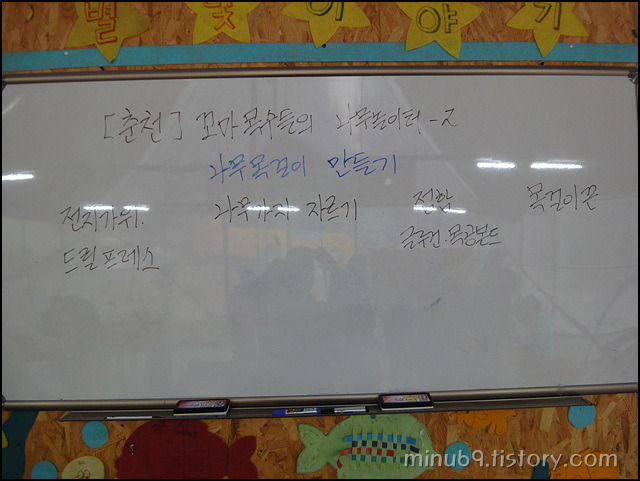 별빛이야기
[춘천] 꼬마목수들의 나무놀이터-2
나무목걸이 만들기
전지가위. 나무가지 자르기 접합 목걸이끈
드릴프레스 글루건.목공본드
minub9.tistory.com